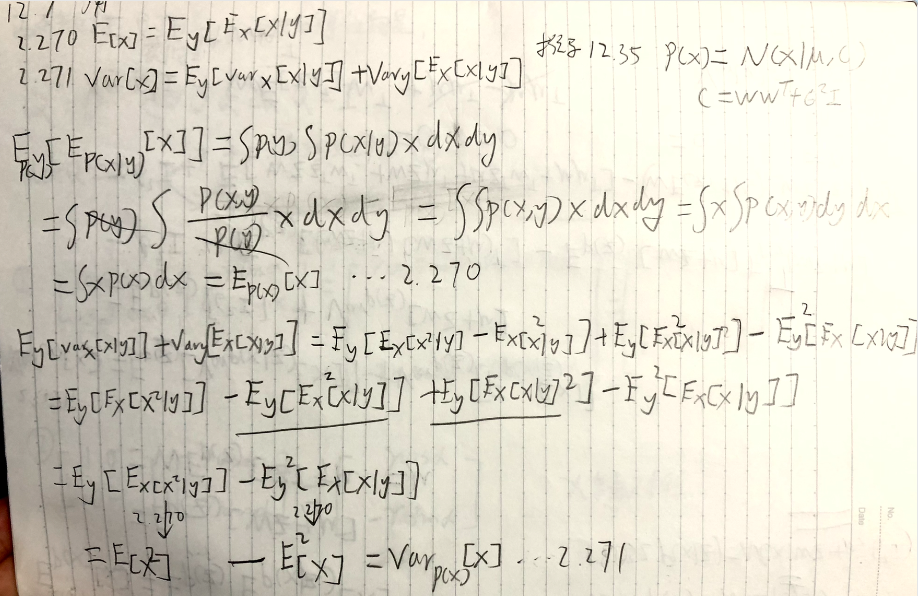 12.1
2.270 E[x] = Ey[Ex[x|y]]
2.271 Var[x] = Ey[varx[x|y]] + Vary[Ex[x|y]]
12.35 P(x) = N(x|μ,C)
C = WWᵀ+σ²I
E_P(y)[E_P(x|y)[x]] = ∫p(y) ∫p(x|y) x dx dy
= ∫P(y) ∫ P(x,y)/P(y) x dx dy = ∫∫p(x,y) x dx dy = ∫x∫p(x,y)dy dx
= ∫xp(x)dx = E_p(x)[x] ... 2.270
Ey[varx[x|y]] + Vary[Ex[x|y]] = Ey[Ex[x²|y] - Ex²[x|y]] + Ey[Ex²[x|y]] - Ey²[Ex[x|y]]
= Ey[Ex[x²|y]] - Ey[Ex²[x|y]] + Ey[Ex[x|y]²] - Ey²[Ex[x|y]]
= Ey[Ex[x²|y]] - Ey²[Ex[x|y]]
2.270 ↓ 2.270 ↓
= E[x²] - E²[x] = Var_p(x)[x] ... 2.271
No.
Date